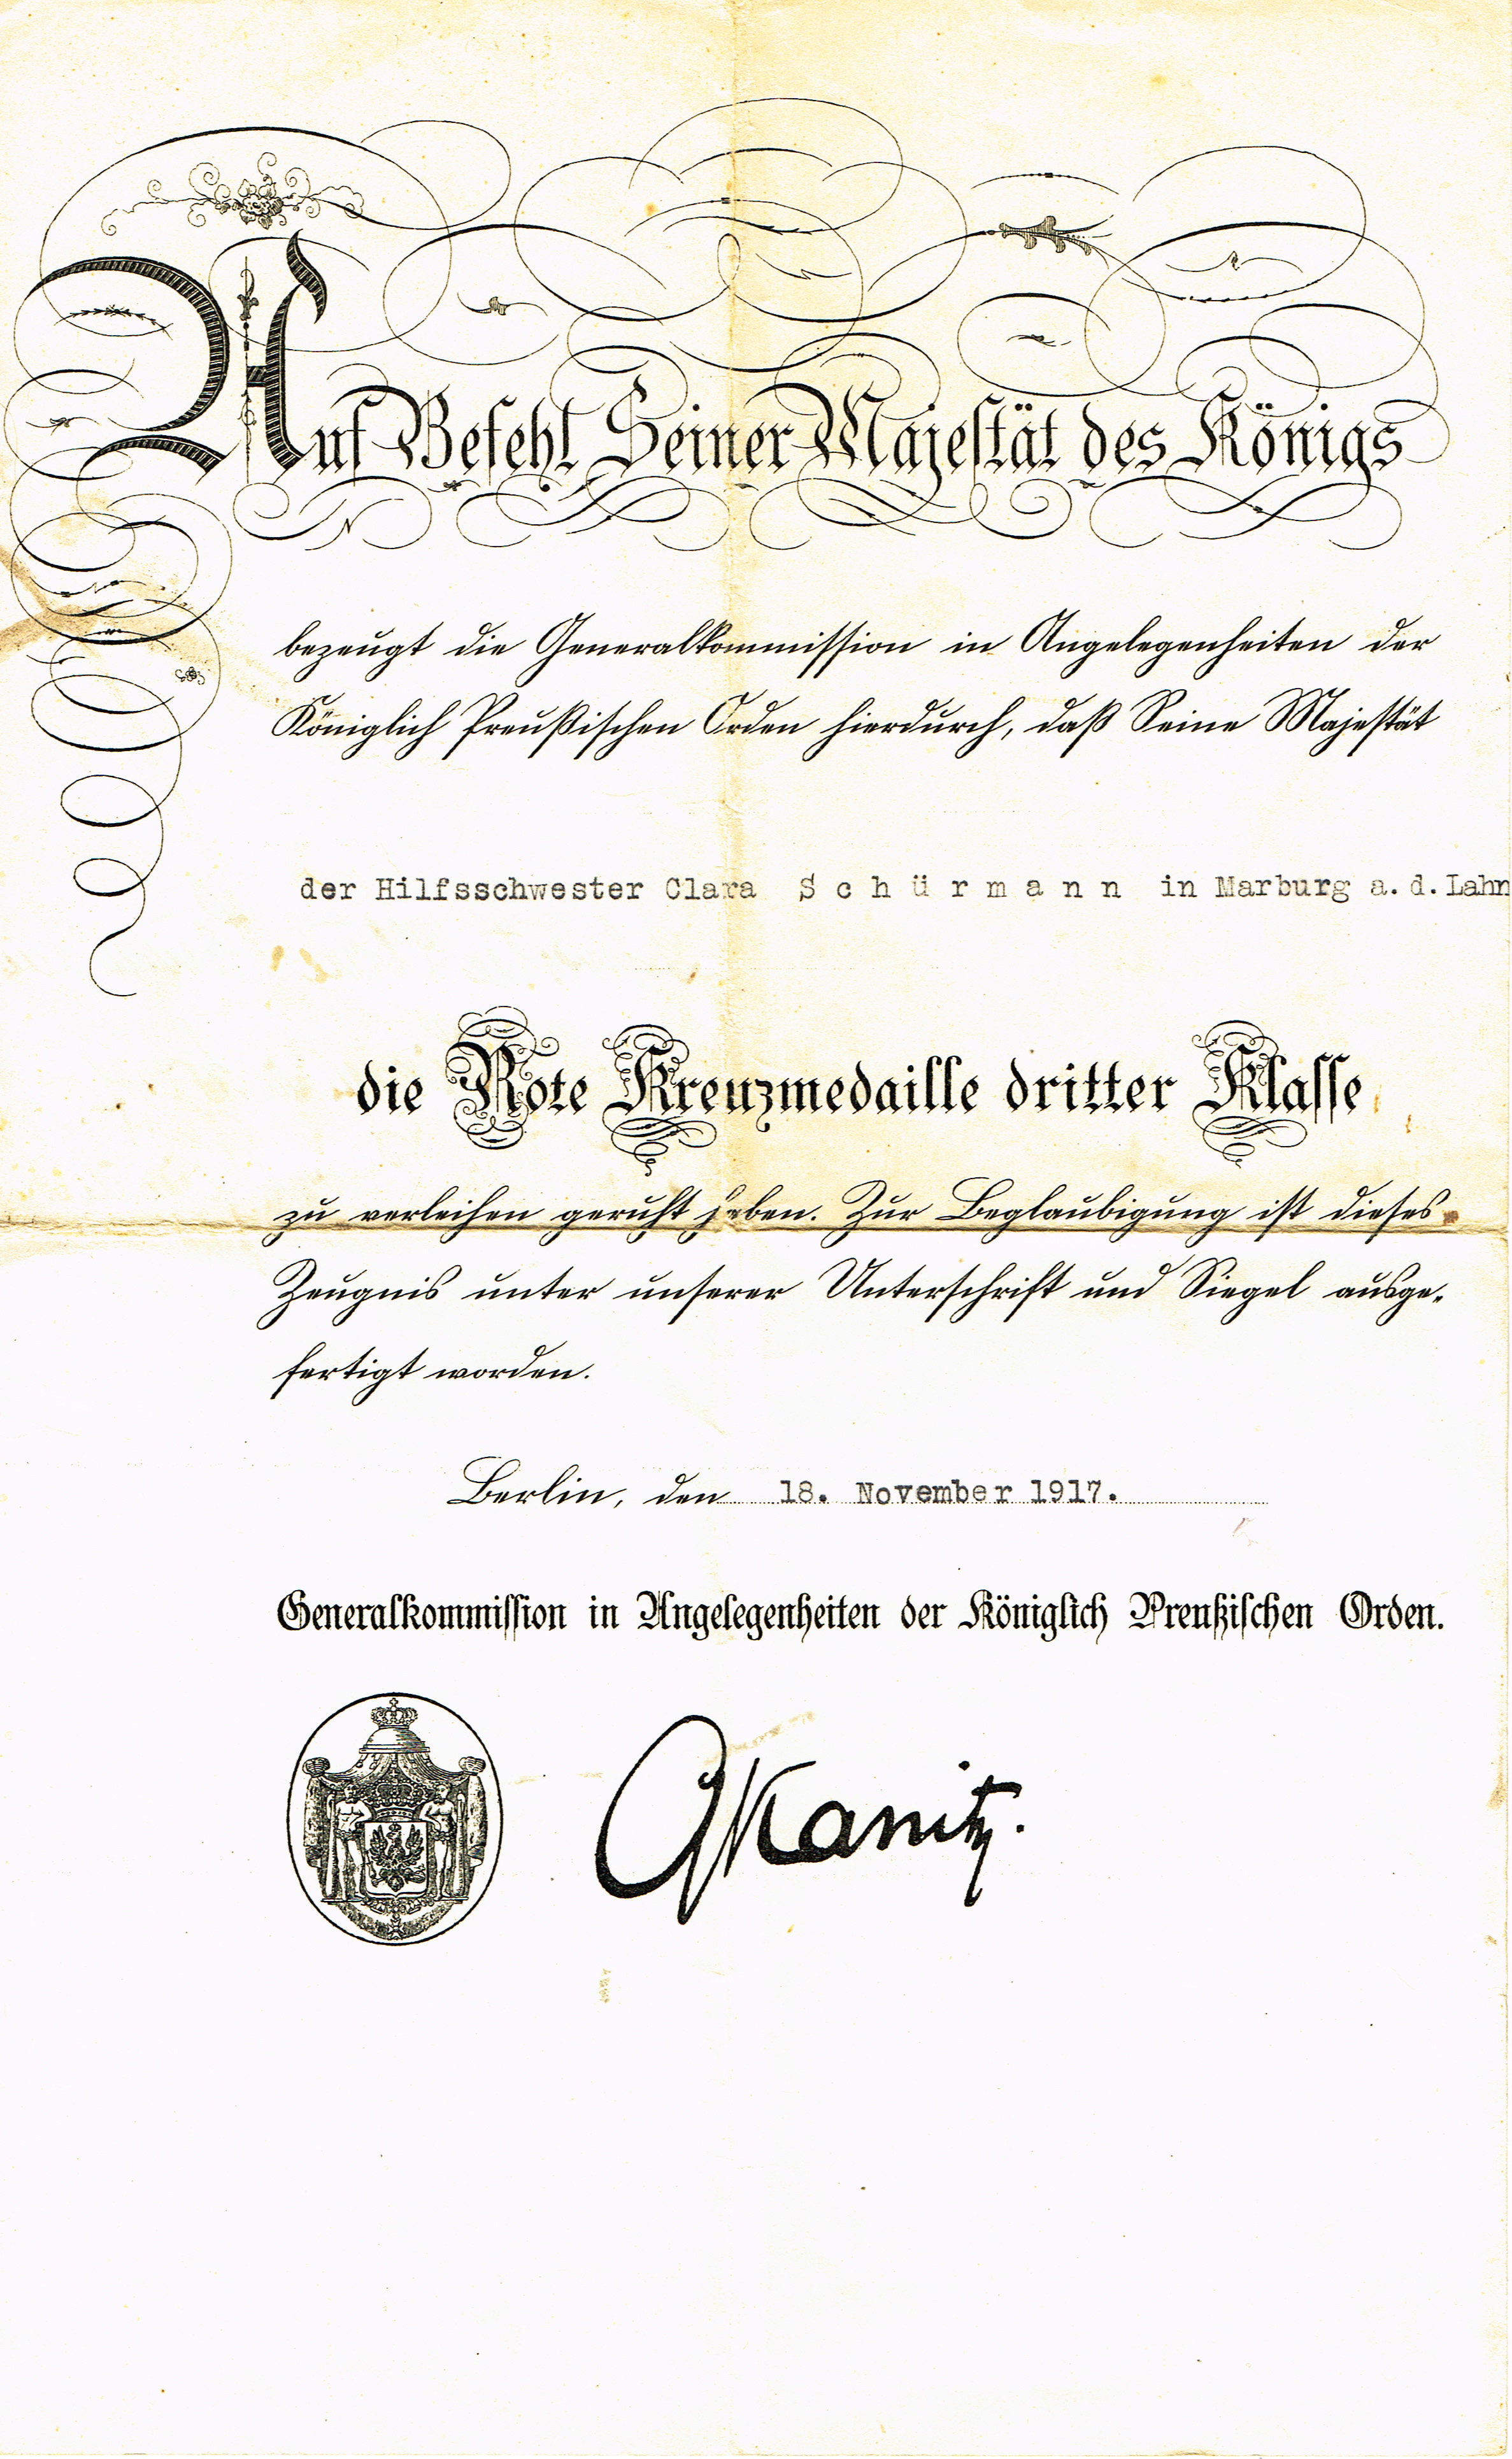 Auf Befehl Seiner Majestät des Königs
bezeugt die Generalkommission in Angelegenheiten der
Königlich Preußischen Orden hierdurch, daß Seine Majestät
der Hilfsschwester Clara Schürmann in Marburg a.d.Lahn
die Rote Kreuzmedaille dritter Klasse
zu verleihen geruht haben. Zur Beglaubigung ist dieses
Zeugnis unter unserer Unterschrift und Siegel ausge-
fertigt worden.
Berlin, den 18. November 1917.
Generalkommission in Angelegenheiten der Königlich Preußischen Orden.
Kanitz.